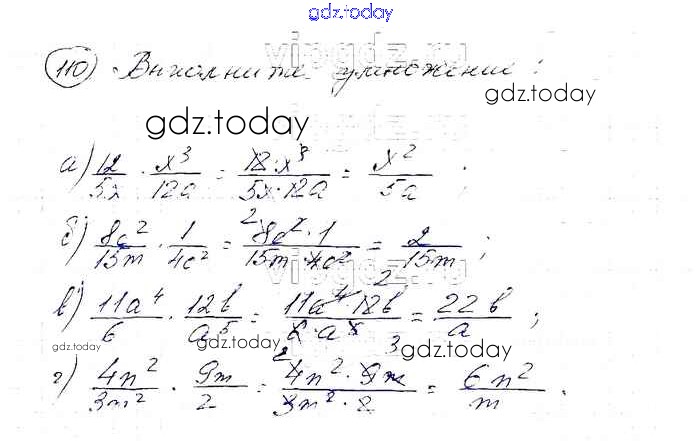 gdz.today
vipgdz.ru
110) Выполните умножение:
gdz.today
gdz.today
а) 12/5x · x³/12a = 12·x³/5x·12a = x²/5a ;
б) 8c²/15m · 1/4c² = 8c²·1/15m·4c² = 2/15m ;
vipgdz.ru
в) 11a⁴/6 · 12b/a⁵ = 11a⁴·12b/6·a⁵ = 22b/a ;
gdz.today
gdz.today
gdz.today
г) 4n²/3m² · 9m/2 = 4n²·9m/3m²·2 = 6n²/m .